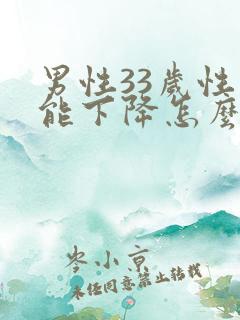 男性33歲性
能下降怎麼
岑小京
未经同意禁止转载